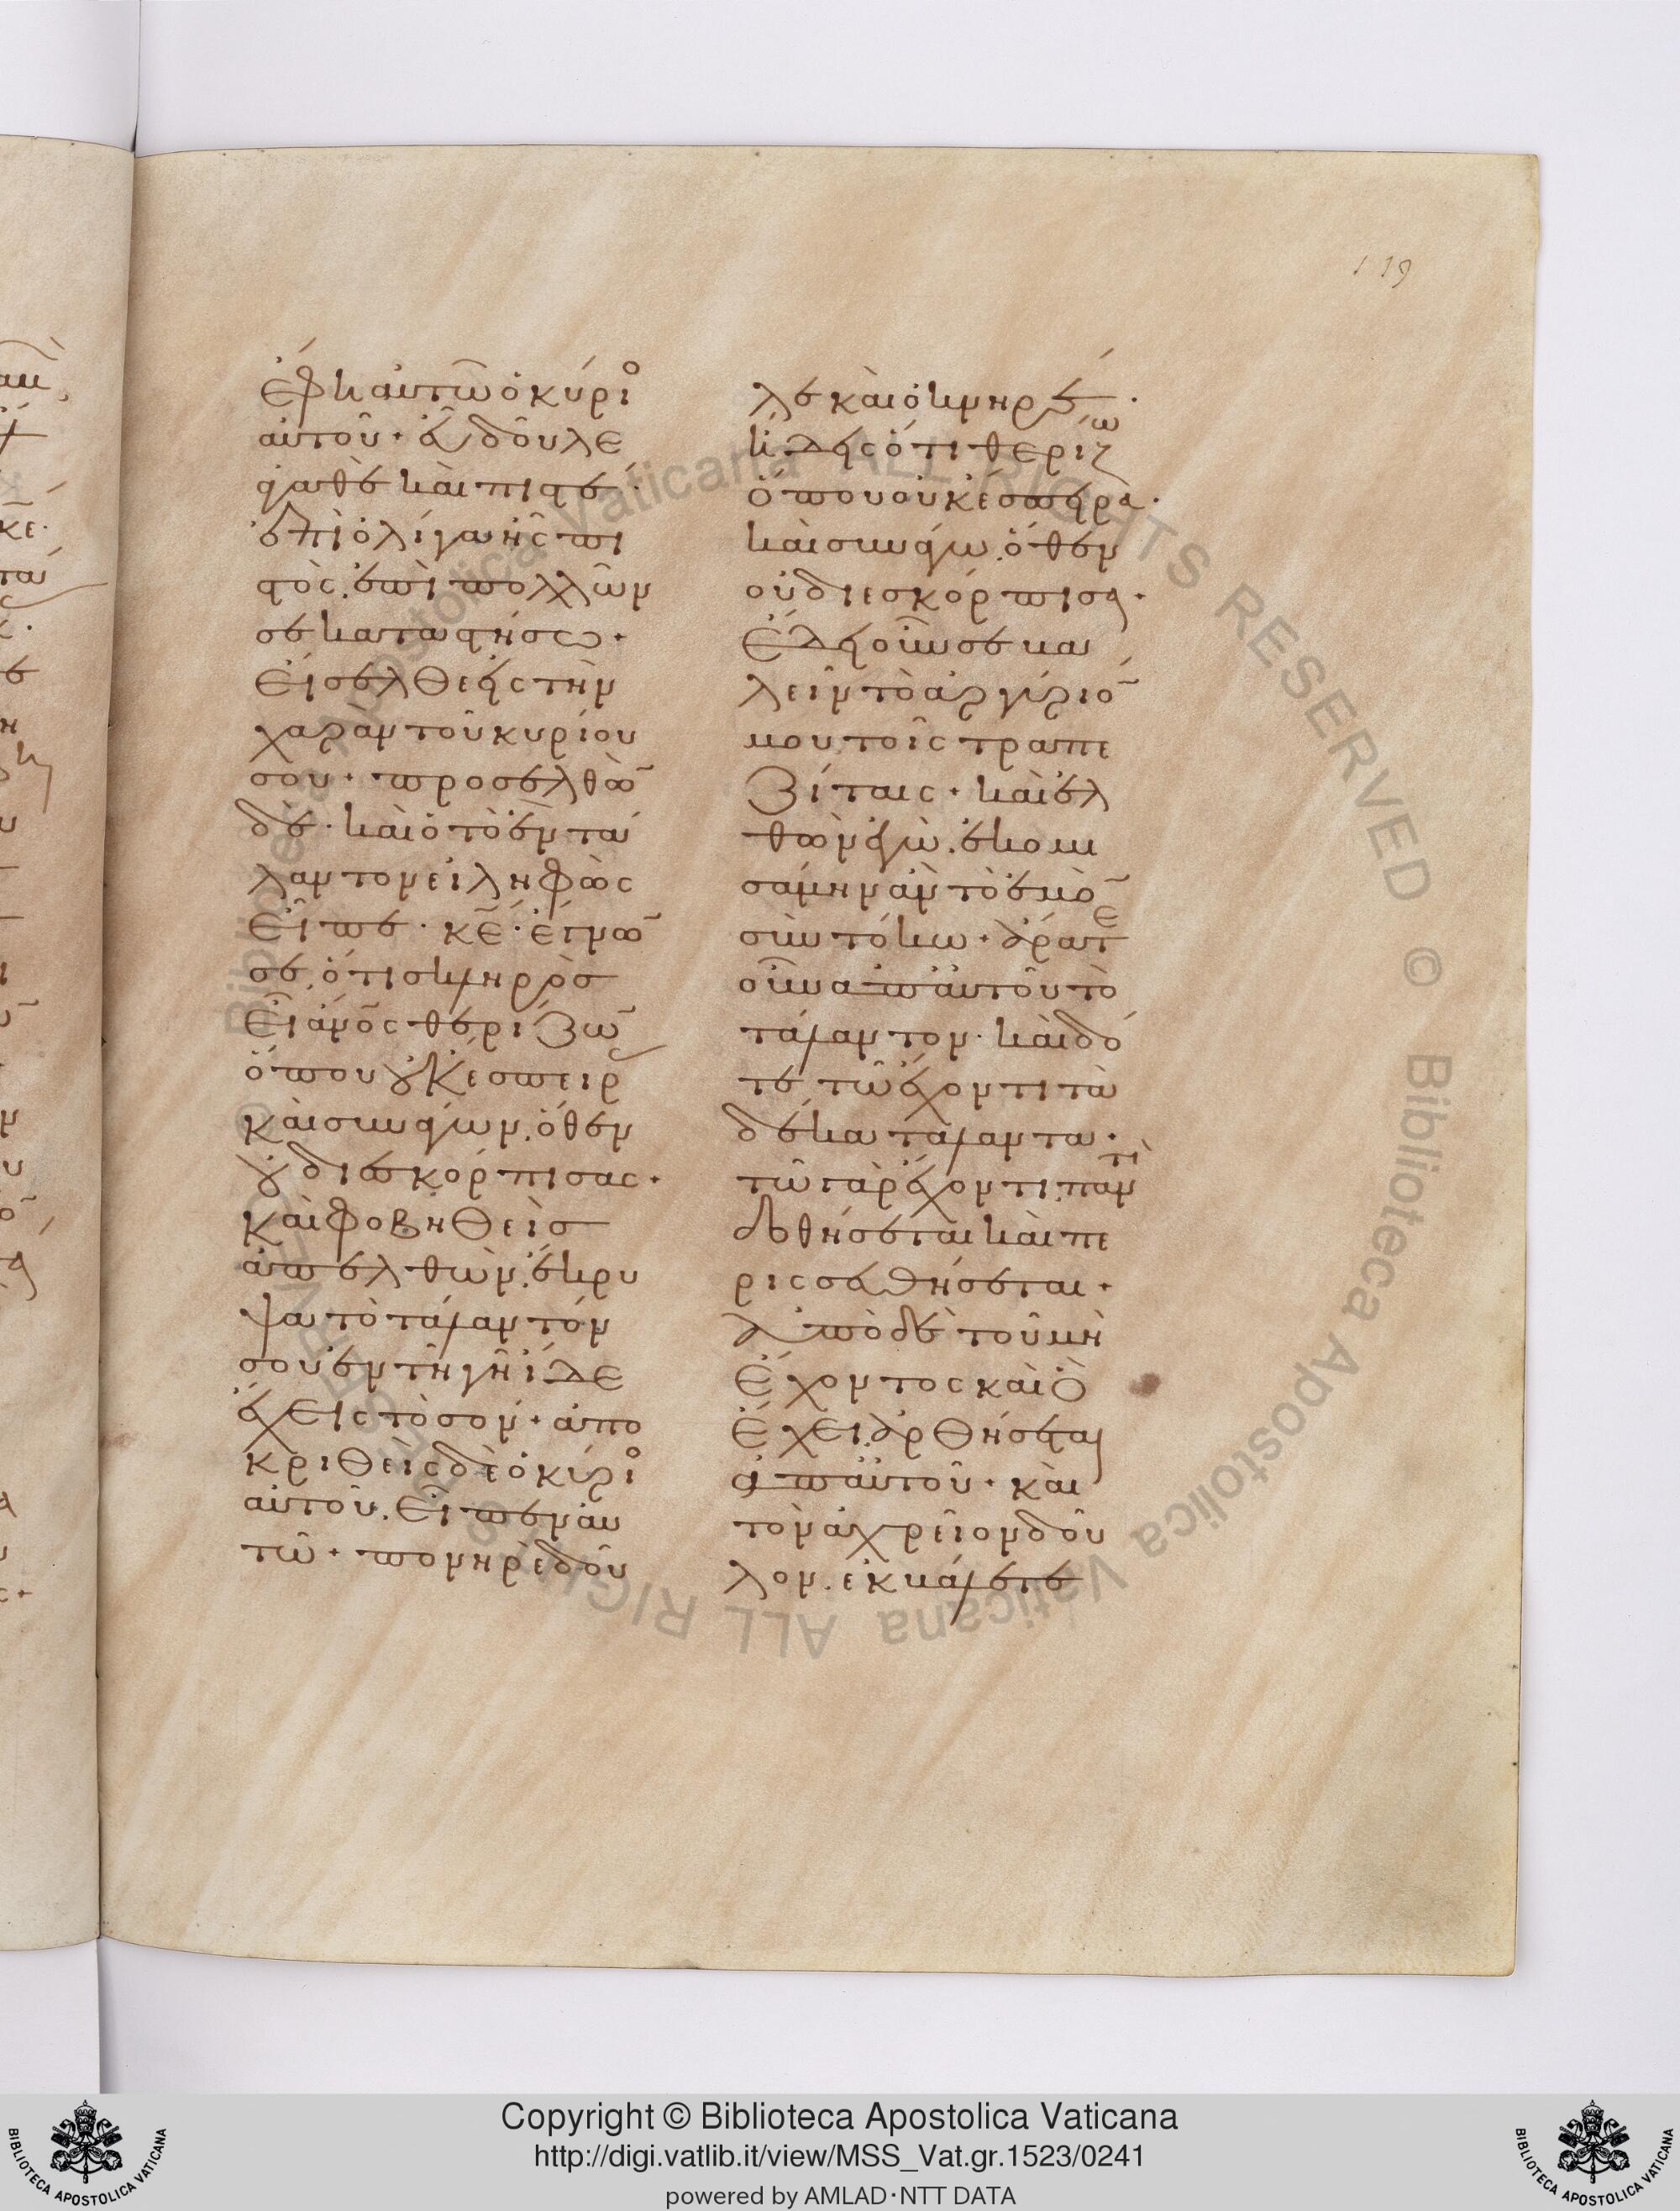 119
ἔφη αὐτῶ ὁ κύρι
αὐτοῦ· εὖ δοῦλε
ἀγαθὲ καὶ πιστέ·
ἐπὶ ὀλίγα ἦς πι
στὸς. ἐπὶ πολλῶν
σε καταστήσω·
Εἴσελθε εἰς τὴν
χαρὰν τοῦ κυρίου
σου· προσελθὼ̅
δὲ· καὶ ὁ τὸ ἓν τά
λαντον εἰληφὼς
εἶπε· κ̅ε̅· ἔγνω̅
σε, ὅτι σκληρὸσ
εἶ ἀν̅ο̅ς θερίζω̅
ὅπου οὐκ ἔσπειρ
καὶ συνάγων. ὅθεν
οὐ διεσκόρπισας·
καὶ φοβηθεὶσ
ἀπελθὼν. ἔκρυ
ψα τὸ τάλαντόν
σου ἐν τῆ γῆ ἴδε
ἔχεις τὸ σόν· ἀπο
κριθεὶς δὲ ὁ κύριο
αὐτοῦ. εἶπεν αὐ
τῶ· πονηρὲ δοῦ
λε καὶ ὀκνηρέ·
ἤδεις ὅτι θερίζω
ὅπου οὐκ ἔσπειρα·
καὶ συνάγω. ὅθεν
οὐ διεσκόρπισα·
Ἔδει οὖν σε βα
λεῖν τὸ ἀργύριο̅
μου τοῖς τραπε
ζίταις· καὶ ἐλ
θὼν ἐγὼ. ἐκομι
σάμην ἂν τὸ ἐμὸ̅
σὺν τόκω· ἄρατε
οὖν ἀπ' αὐτοῦ τὸ
τάλαντον· καὶ δό
τε τῶ ἔχοντι τὰ
δέκα τάλαντα·
τῶ γὰρ ἔχοντι. παντὶ
δοθήσεται καὶ πε
ρισσευθήσεται·
Ἀπὸ δὲ τοῦ μὴ
ἔχοντος καὶ ὃ
ἔχει. ἀρθήσεται
ἀπ' αὐτοῦ· καὶ
τὸν ἀχρεῖον δοῦ
λον. ἐκβάλετε
Copyright © Biblioteca Apostolica Vaticana
http://digi.vatlib.it/view/MSS_Vat.gr.1523/0241
powered by AMLAD·NTT DATA
BIBLIOTECA APOSTOLICA VATICANA
BIBLIOTECA APOSTOLICA VATICANA
© Biblioteca Apostolica Vaticana ALL RIGHTS RESERVED © Biblioteca Apostolica Vaticana ALL RIGHTS RESERVED